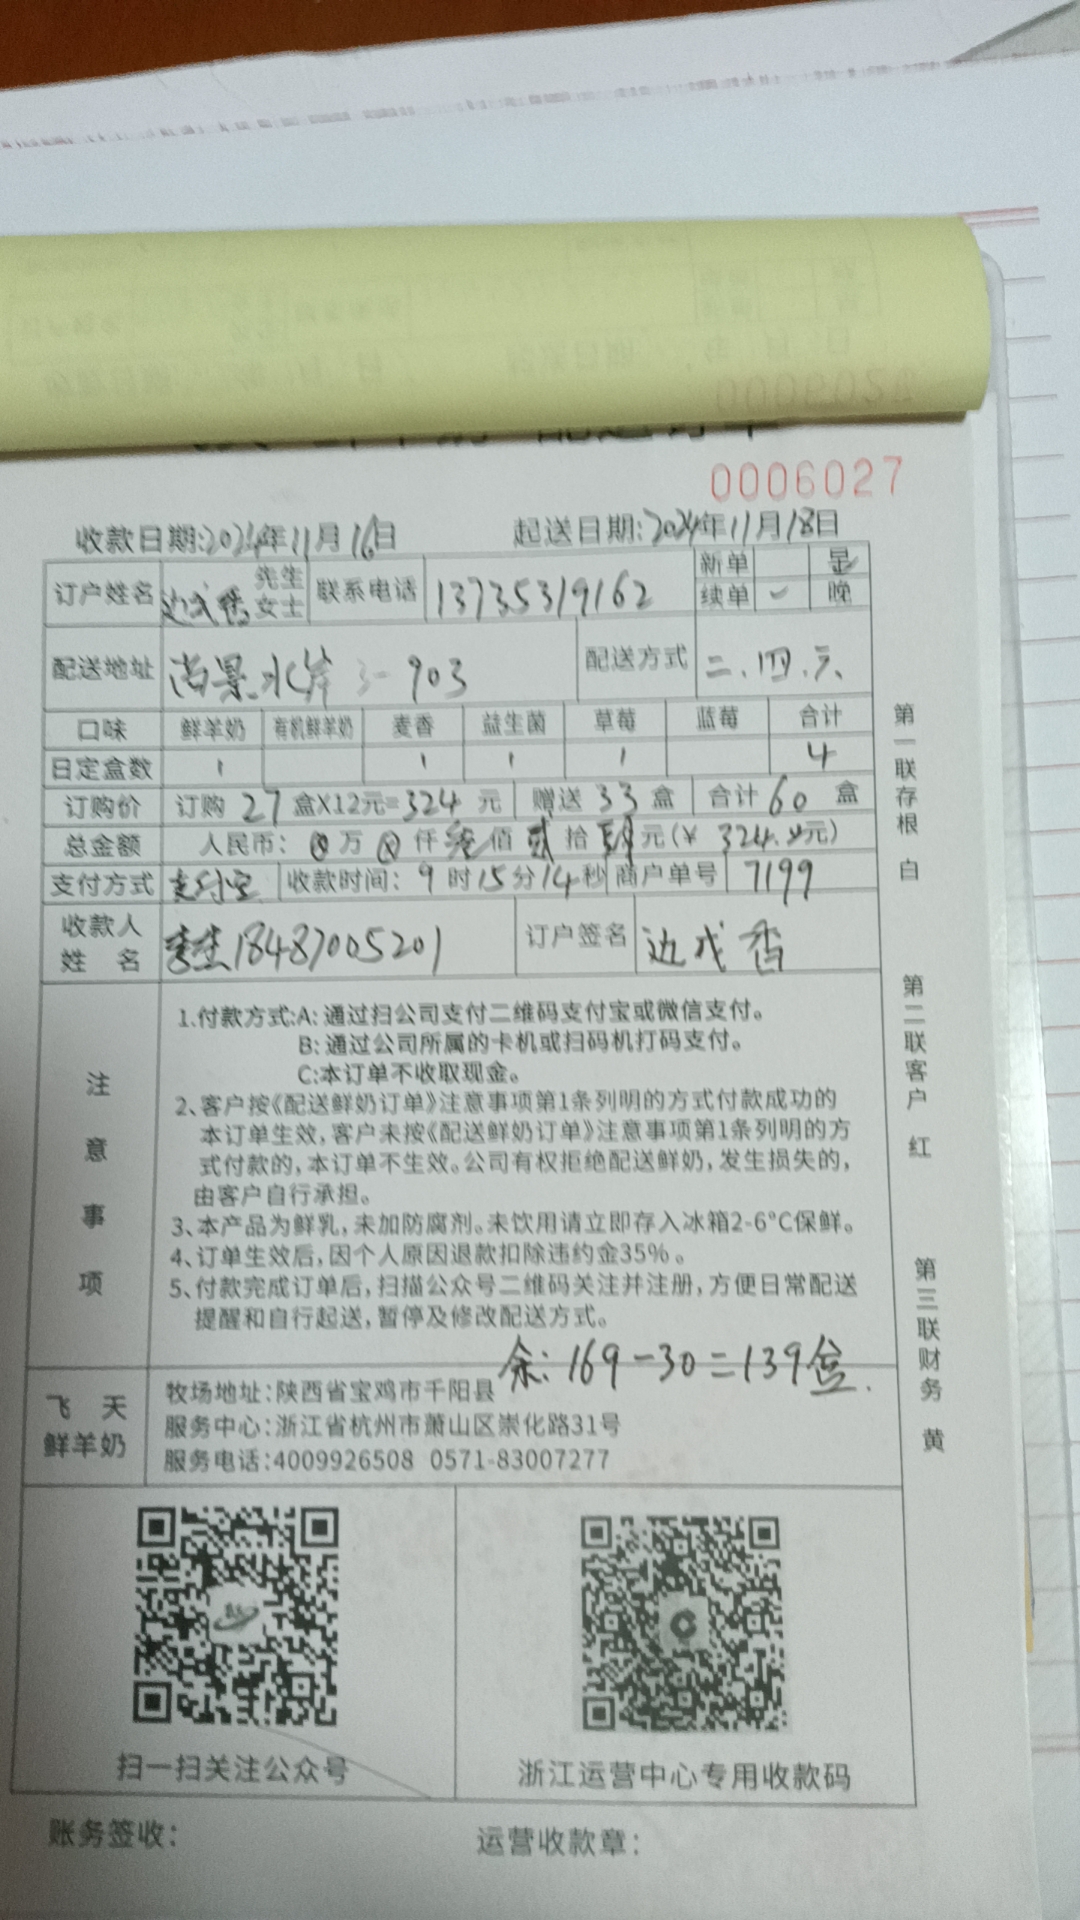 0006027
收款日期:2024年11月16日 起送日期:2024年11月18日
订户姓名 边戎香 先生 女士 联系电话 13735319162 新单 续单 一 晚
配送地址 尚景水岸 3-903 配送方式 二.四.六
口味 鲜羊奶 有机鲜羊奶 麦香 益生菌 草莓 蓝莓 合计
日定盒数 1 1 1 1 4
订购价 订购 27 盒X12元=324 元 赠送 33 盒 合计 60 盒
总金额 人民币: 万 仟 叁 佰 贰 拾 肆 元(¥ 324. 元)
支付方式 支付宝 收款时间: 9 时 15 分 14 秒 商户单号 7199
收款人姓名 18487005201 订户签名 边戎香
注意事项
1.付款方式:A: 通过扫公司支付二维码支付宝或微信支付。
B: 通过公司所属的卡机或扫码机打码支付。
C:本订单不收取现金。
2、客户按《配送鲜奶订单》注意事项第1条列明的方式付款成功的
本订单生效,客户未按《配送鲜奶订单》注意事项第1条列明的方
式付款的,本订单不生效。公司有权拒绝配送鲜奶,发生损失的,
由客户自行承担。
3、本产品为鲜乳,未加防腐剂。未饮用请立即存入冰箱2-6°C保鲜。
4、订单生效后,因个人原因退款扣除违约金35%。
5、付款完成订单后,扫描公众号二维码关注并注册,方便日常配送
提醒和自行起送,暂停及修改配送方式。
余: 169-30=139盒.
飞天鲜羊奶
牧场地址:陕西省宝鸡市千阳县
服务中心:浙江省杭州市萧山区崇化路31号
服务电话:4009926508 0571-83007277
扫一扫关注公众号 浙江运营中心专用收款码
账务签收: 运营收款章:
第一联存根 白
第二联客户 红
第三联财务 黄